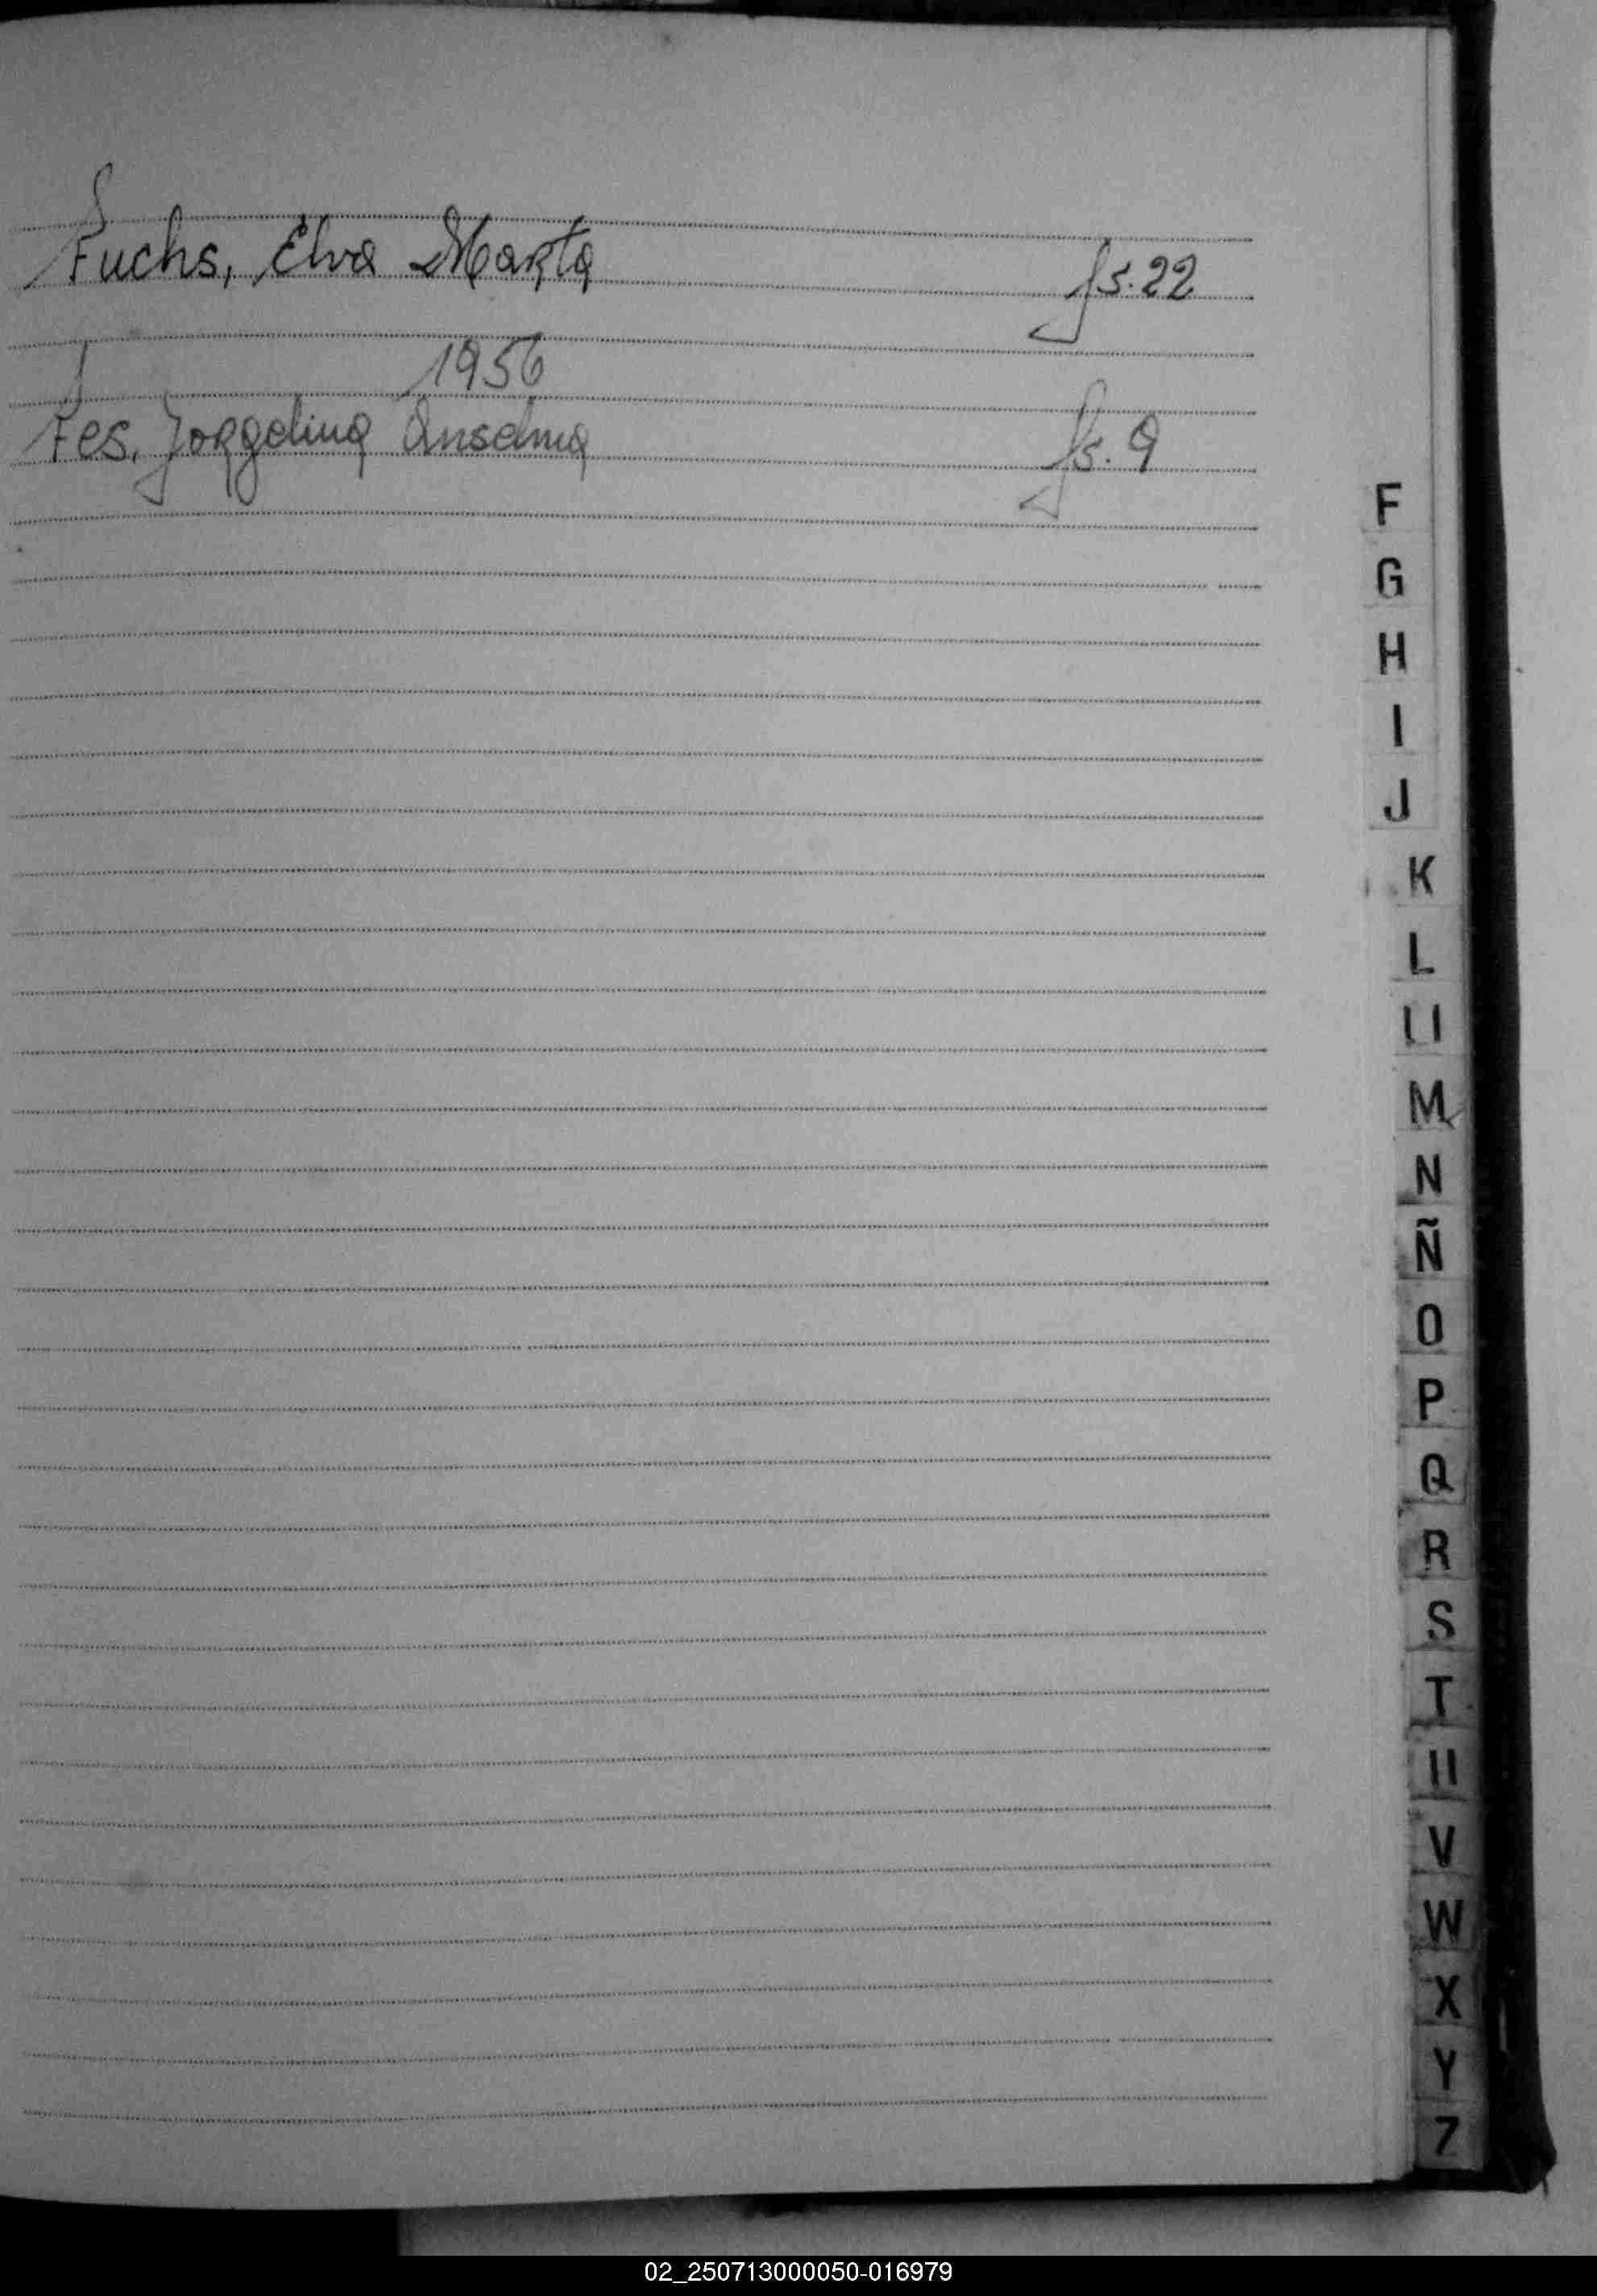 Fuchs, Elva Marta fs. 22
1956
Fes, Jorgelina Anselma fs. 9
F
G
H
I
J
K
L
M
N
Ñ
O
P
Q
R
S
T
V
W
X
Y
Z
02_250713000050-016979